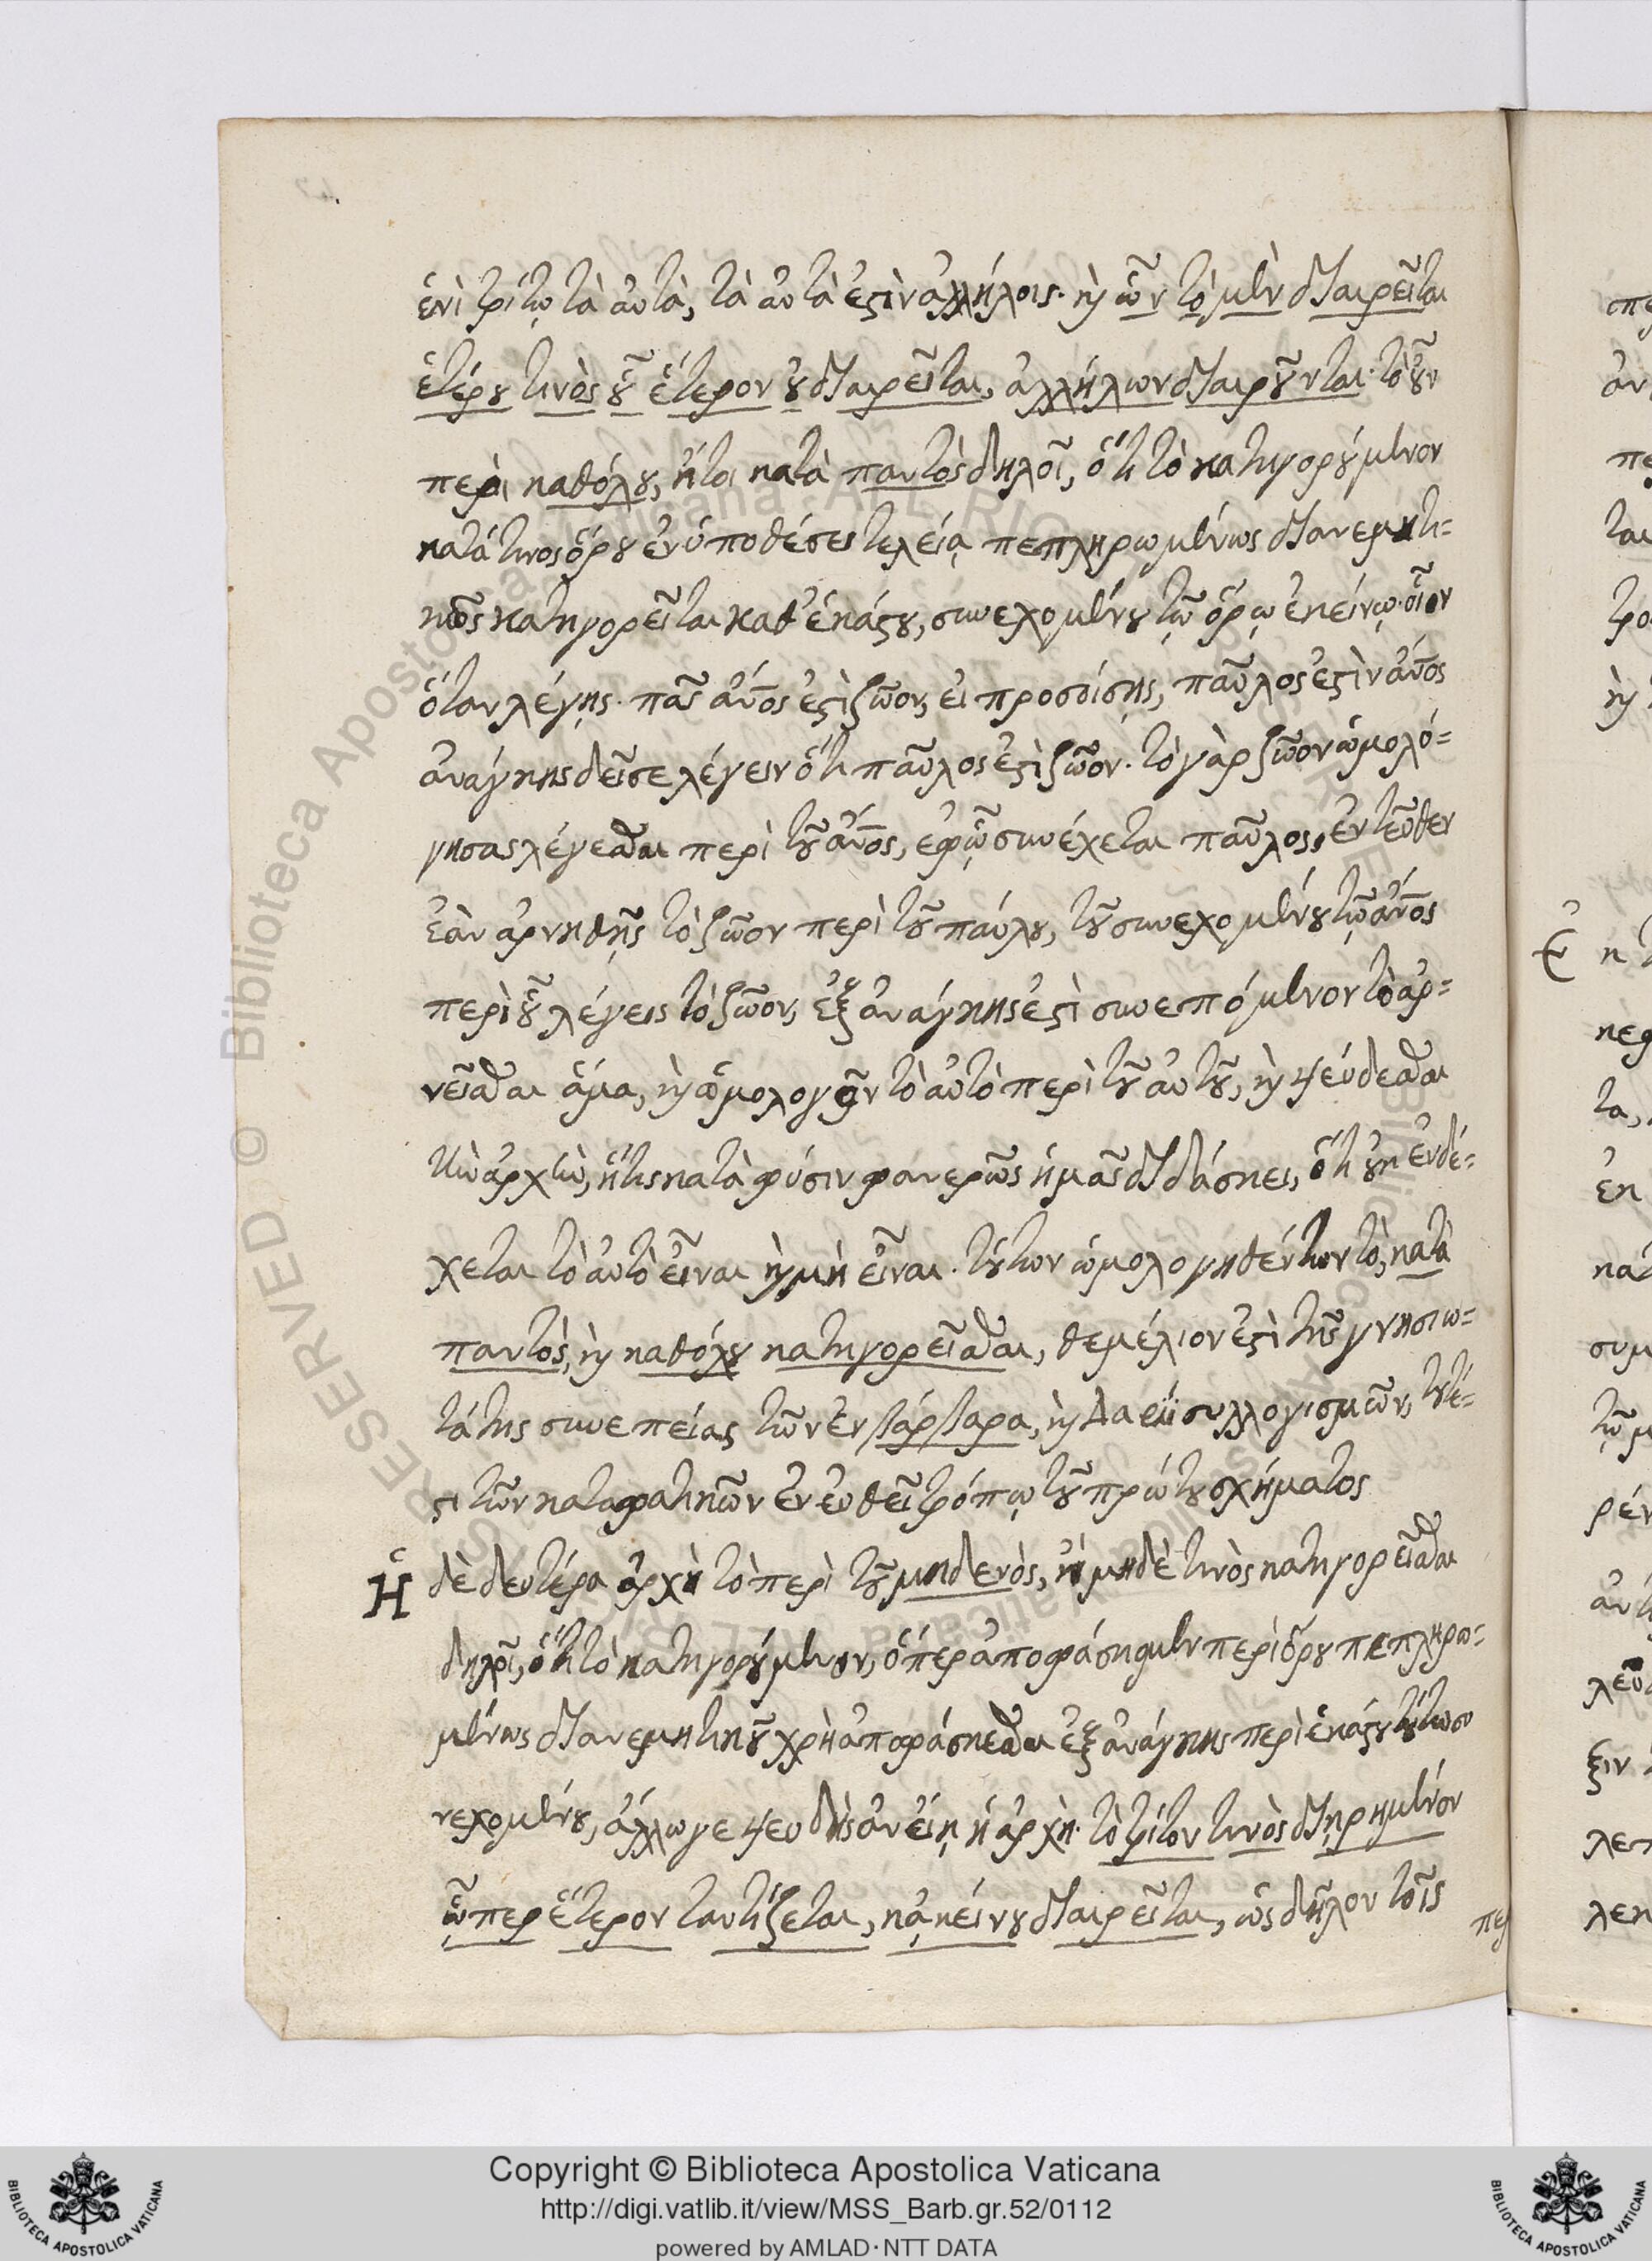 ἑνὶ τρίτῳ τὰ αὐτὰ, τὰ αὐτὰ ἐστὶν ἀλλήλοις. καὶ ὧν τὸ μὲν διαιρεῖται
ἑτέρου τινὸς οὗ ἕτερον οὐ διαιρεῖται, ἀλλήλων διαιροῦνται. τὸ οὖν
περὶ καθόλου, ἤτοι κατὰ παντὸς δηλοῖ, ὅτι τὸ κατηγορούμενον
κατά τινος ὅρου ἐν ὑποθέσει τελείᾳ πεπληρωμένως διανεμητι=
κῶς κατηγορεῖται καθ' ἑκάστου, συνεχομένου τῷ ὅρῳ ἐκείνῳ. οἷον
ὅταν λέγῃς. πᾶς ἄνος ἐστὶ ζῶον, εἰ προσοίσῃς, παῦλος ἐστὶν ἄνος
ἀνάγκης δεῖ σε λέγειν ὅτι παῦλος ἐστὶ ζῶον. τὸ γὰρ ζῶον ὡμολό=
γησας λέγεσθαι περὶ τοῦ ἄνος, ἐφ ᾧ συνέχεται παῦλος, ἐντεῦθεν
ἐὰν ἀρνηθῇς τὸ ζῶον περὶ τοῦ παύλου, τοῦ συνεχομένου τῷ ἄνος
περὶ οὗ λέγεις τὸ ζῶον, ἐξ ἀνάγκης ἐστὶ συνεπόμενον τὸ ἀρ=
νεῖσθαι ἅμα, καὶ ὁμολογεῖν τὸ αὐτὸ περὶ τοῦ αὐτοῦ, καὶ ψεύδεσθαι
τὴν ἀρχὴν, ἥτις κατὰ φύσιν φανερῶς ἡμᾶς διδάσκει, ὅτι οὐκ ἐνδέ=
χεται τὸ αὐτὸ εἶναι καὶ μὴ εἶναι. τούτων ὡμολογηθέντων τὸ, κατὰ
παντὸς, καὶ καθόλου κατηγορεῖσθαι, θεμέλιον ἐστὶ τῆς γνησιω=
τάτης συνεπείας τῶν ἐν βάρβαρα, καὶ Δαεΐι συλλογισμῶν, τουτέ=
στι τῶν καταφατικῶν ἐν εὐθεῖ τρόπῳ τοῦ πρώτου σχήματος
Ἡ δὲ δευτέρα ἀρχὴ τὸ περὶ τοῦ μηδενὸς, ἢ μηδὲ τινὸς κατηγορεῖσθαι
δηλοῖ, ὅτι τὸ κατηγορούμενον, ὅπερ ἀποφάσκομεν περὶ ὅρου πεπληρω=
μένως διανεμητικοῦ χρὴ ἀποφάσκεσθαι ἐξ ἀνάγκης περὶ ἑκάστου τούτω συ
νεχομένου, ἄλλωγε ψευδὴς ἂν εἴη ἡ ἀρχὴ. τὸ τρίτον τινὸς διῃρημένον
ᾧπερ ἕτερον ταυτίζεται, κἀκείνου διαιρεῖται, ὡς δῆλον τοῖς